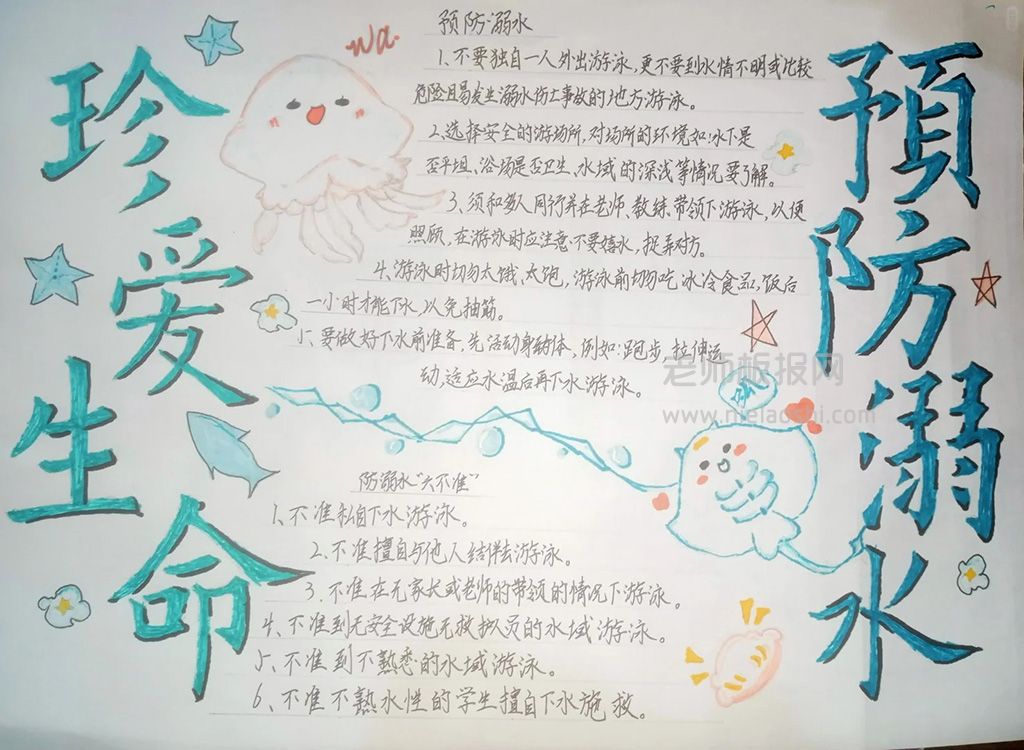 珍爱生命
預防溺水
Wa.
预防溺水
1、不要独自一人外出游泳,更不要到水情不明或比较
危险且易发生溺水伤亡事故的地方游泳。
2、选择安全的游场所,对场所的环境如:水下是
否平坦、浴场是否卫生、水域的深浅等情况要了解。
3、须和多人同行并在老师、教练带领下游泳,以便
照顾,在游泳时应注意不要嬉水,捉弄对方。
4、游泳时切勿太饿、太饱,游泳前切勿吃冰冷食品,饭后
一小时才能下水,以免抽筋。
5、要做好下水前准备,先活动身体,例如:跑步,拉伸运
动,适应水温后再下水游泳。
老师板报网
www.mielaoshi.com
防溺水“六不准”
1、不准私自下水游泳。
2、不准擅自与他人结伴去游泳。
3、不准在无家长或老师的带领的情况下游泳。
4、不准到无安全设施无救护员的水域游泳。
5、不准到不熟悉的水域游泳。
6、不准不熟水性的学生擅自下水施救。